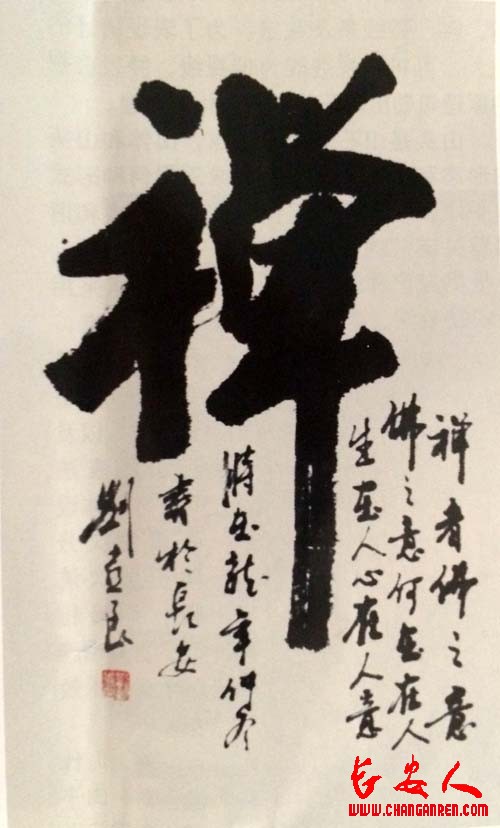 禅
禅者佛之意
佛之意何在在人
生在人心在人意
時在龍年仲冬
於長安
劉 良
长安人
WWW.CHANGANREN.COM